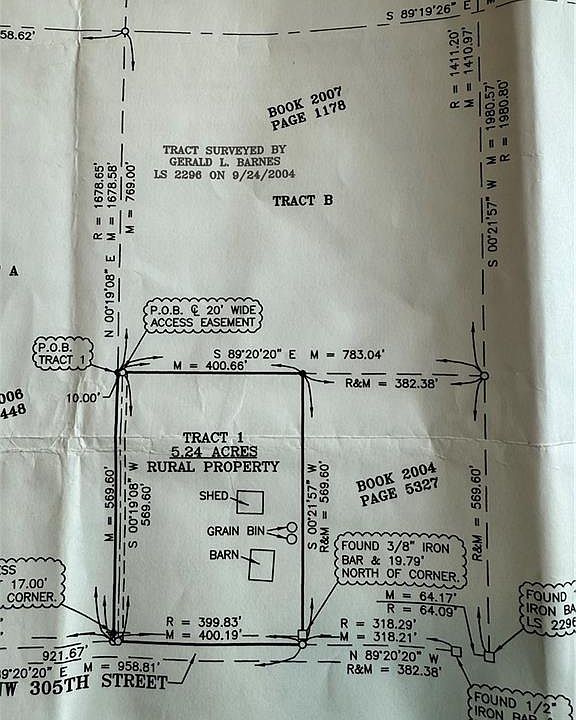 58.62'
S 89°19'26" E
R = 1411.20'
M = 1410.97'
BOOK 2007
PAGE 1178
S 00°21'57" W M = 1980.57'
R = 1980.80'
TRACT SURVEYED BY
GERALD L. BARNES
LS 2296 ON 9/24/2004
TRACT B
N 00°19'08" E
R = 1678.65'
M = 1678.58'
M = 769.00'
A
P.O.B. ℄ 20' WIDE
ACCESS EASEMENT
P.O.B.
TRACT 1
S 89°20'20" E M = 783.04'
M = 400.66'
R&M = 382.38'
10.00'
006
448
TRACT 1
5.24 ACRES
RURAL PROPERTY
M = 569.60'
S 00°19'08" W
569.60'
SHED
GRAIN BIN
BARN
S 00°21'57" W
R&M = 569.60'
BOOK 2004
PAGE 5327
R&M = 569.60'
FOUND 3/8" IRON
BAR & 19.79'
NORTH OF CORNER.
SS
17.00'
CORNER.
M = 64.17'
R = 64.09'
FOUND
IRON BA
LS 2296
R = 399.83'
M = 400.19'
R = 318.29'
M = 318.21'
921.67'
9°20'20" E M = 958.81'
N 89°20'20" W
R&M = 382.38'
NW 305TH STREET
FOUND 1/2"
IRON BAR